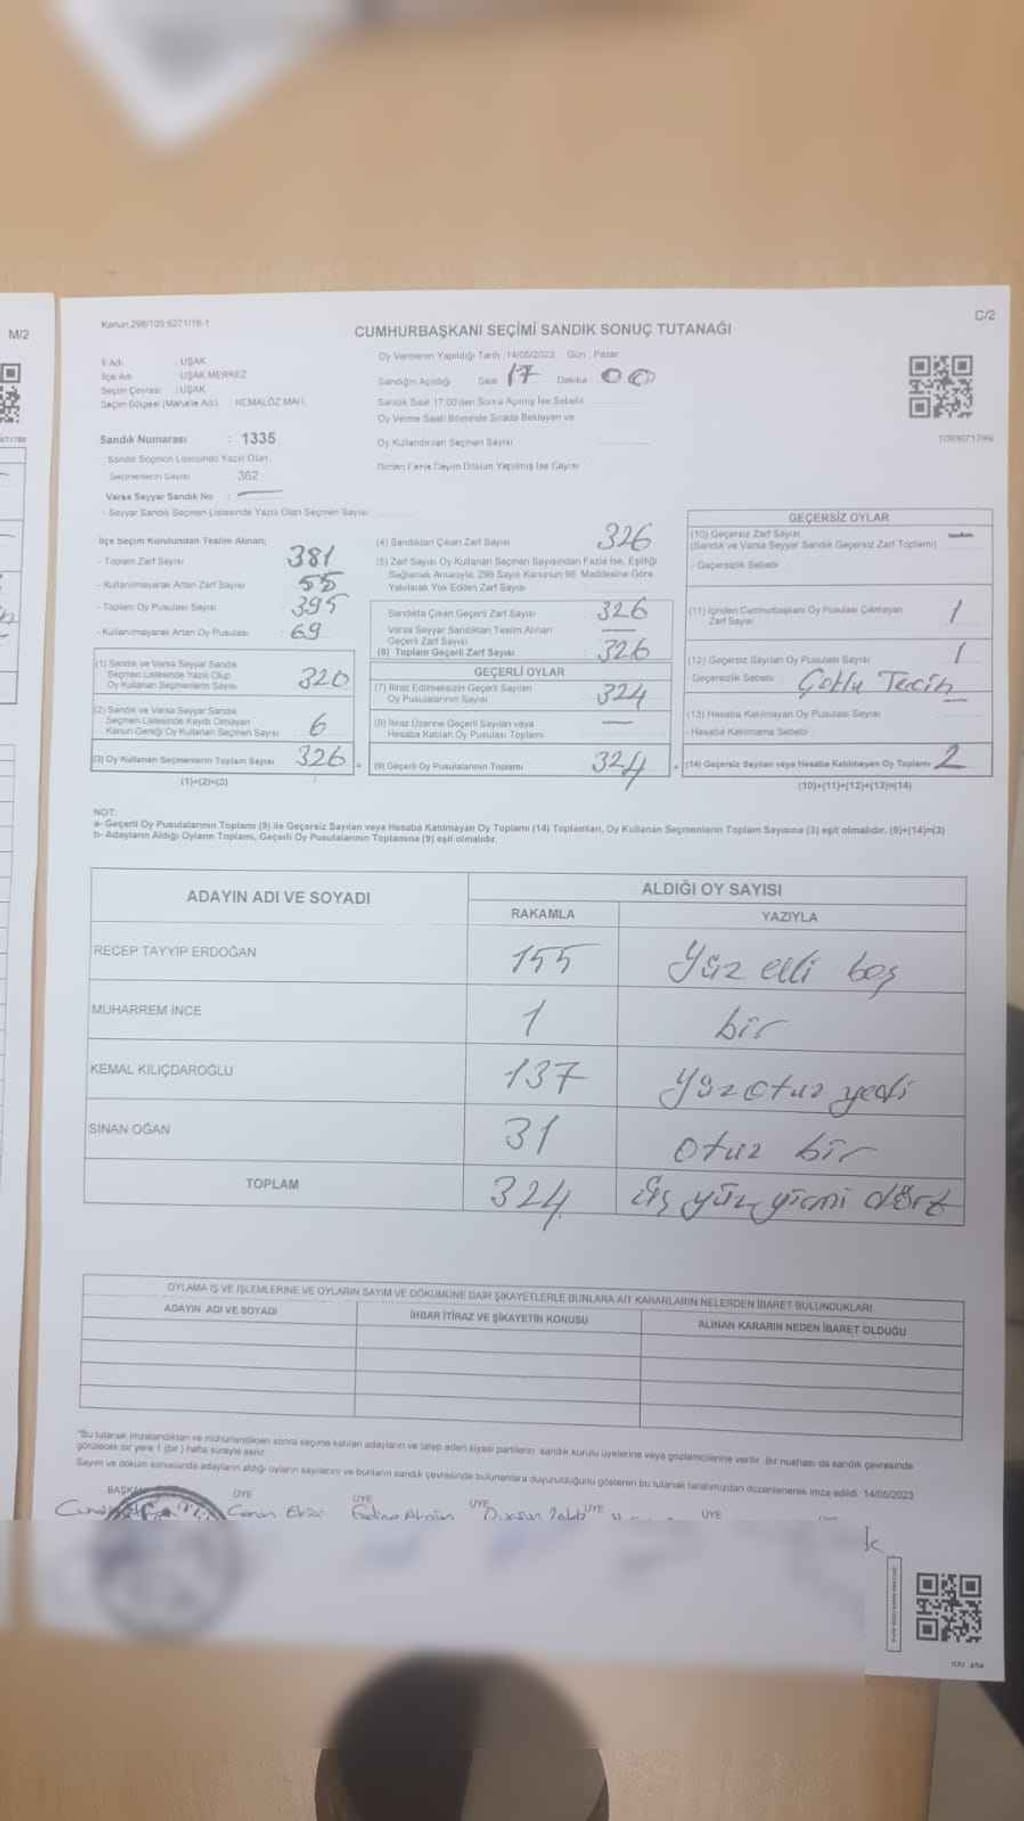 M/2
Kanun:298/105-6271/16-1
C/2
CUMHURBAŞKANI SEÇİMİ SANDIK SONUÇ TUTANAĞI
İl Adı : UŞAK
İlçe Adı : UŞAK MERKEZ
Seçim Çevresi : UŞAK
Seçim Bölgesi (Mahalle Adı) : KEMALÖZ MAH.
Sandık Numarası : 1335
Sandık Seçmen Listesinde Yazılı Olan
Seçmenlerin Sayısı 362
Varsa Seyyar Sandık No :
- Seyyar Sandık Seçmen Listesinde Yazılı Olan Seçmen Sayısı
Oy Vermenin Yapıldığı Tarih : 14/05/2023 Gün : Pazar
Sandığın Açıldığı Saat 17 Dakika 00
Sandık Saat 17:00'den Sonra Açılmış İse Sebebi
Oy Verme Saati Bitiminde Sırada Bekleyen ve
Oy Kullandırılan Seçmen Sayısı
Birden Fazla Sayım Döküm Yapılmış İse Sayısı
İlçe Seçim Kurulundan Teslim Alınan;
- Toplam Zarf Sayısı 381
- Kullanılmayarak Artan Zarf Sayısı 55
- Toplam Oy Pusulası Sayısı 395
- Kullanılmayarak Artan Oy Pusulası 69
(1) Sandık ve Varsa Seyyar Sandık
Seçmen Listesinde Yazılı Olup
Oy Kullanan Seçmenlerin Sayısı 320
(2) Sandık ve Varsa Seyyar Sandık
Seçmen Listesinde Kaydı Olmayan
Kanun Gereği Oy Kullanan Seçmen Sayısı 6
(3) Oy Kullanan Seçmenlerin Toplam Sayısı 326
(1)+(2)=(3)
(4) Sandıktan Çıkan Zarf Sayısı 326
(5) Zarf Sayısı Oy Kullanan Seçmen Sayısından Fazla İse, Eşitliği
Sağlamak Amacıyla, 298 Sayılı Kanunun 98. Maddesine Göre
Yakılarak Yok Edilen Zarf Sayısı
Sandıkta Çıkan Geçerli Zarf Sayısı 326
Varsa Seyyar Sandıktan Teslim Alınan
Geçerli Zarf Sayısı
(6) Toplam Geçerli Zarf Sayısı 326
GEÇERLİ OYLAR
(7) İtiraz Edilmeksizin Geçerli Sayılan
Oy Pusulalarının Sayısı 324
(8) İtiraz Üzerine Geçerli Sayılan veya
Hesaba Katılan Oy Pusulası Toplamı
(9) Geçerli Oy Pusulalarının Toplamı 324
GEÇERSİZ OYLAR
(10) Geçersiz Zarf Sayısı
(Sandık ve Varsa Seyyar Sandık Geçersiz Zarf Toplamı)
- Geçersizlik Sebebi
(11) İçinden Cumhurbaşkanı Oy Pusulası Çıkmayan
Zarf Sayısı 1
(12) Geçersiz Sayılan Oy Pusulası Sayısı 1
Geçersizlik Sebebi Çoklu Tercih
(13) Hesaba Katılmayan Oy Pusulası Sayısı
- Hesaba Katılmama Sebebi
(14) Geçersiz Sayılan veya Hesaba Katılmayan Oy Toplamı 2
(10)+(11)+(12)+(13)=(14)
NOT:
a- Geçerli Oy Pusulalarının Toplamı (9) ile Geçersiz Sayılan veya Hesaba Katılmayan Oy Toplamı (14) Toplamları, Oy Kullanan Seçmenlerin Toplam Sayısına (3) eşit olmalıdır. (9)+(14)=(3)
b- Adayların Aldığı Oyların Toplamı, Geçerli Oy Pusulalarının Toplamına (9) eşit olmalıdır.
ADAYIN ADI VE SOYADI
ALDIĞI OY SAYISI
RAKAMLA YAZIYLA
RECEP TAYYİP ERDOĞAN 155 Yüz elli beş
MUHARREM İNCE 1 bir
KEMAL KILIÇDAROĞLU 137 Yüzotuz yedi
SİNAN OĞAN 31 otuz bir
TOPLAM 324 üç yüz yirmi dört
OYLAMA İŞ VE İŞLEMLERİNE VE OYLARIN SAYIM VE DÖKÜMÜNE DAİR ŞİKAYETLERLE BUNLARA AİT KARARLARIN NELERDEN İBARET BULUNDUKLARI
ADAYIN ADI VE SOYADI İHBAR İTİRAZ VE ŞİKAYETİN KONUSU ALINAN KARARIN NEDEN İBARET OLDUĞU
"Bu tutanak imzalandıktan ve mühürlendikten sonra seçime katılan adayların ve talep eden siyasi partilerin, sandık kurulu üyelerine veya gözlemcilerine verilir. Bir nushası da sandık çevresinde
görülecek bir yere 1 (bir) hafta süreyle asılır.
Sayım ve döküm sonucunda adayların aldığı oyların sayılarını ve bunların sandık çevresinde bulunanlara duyurulduğunu gösteren bu tutanak tarafımızdan düzenlenerek imza edildi. 14/05/2023
BAŞKAN ÜYE ÜYE ÜYE ÜYE ÜYE